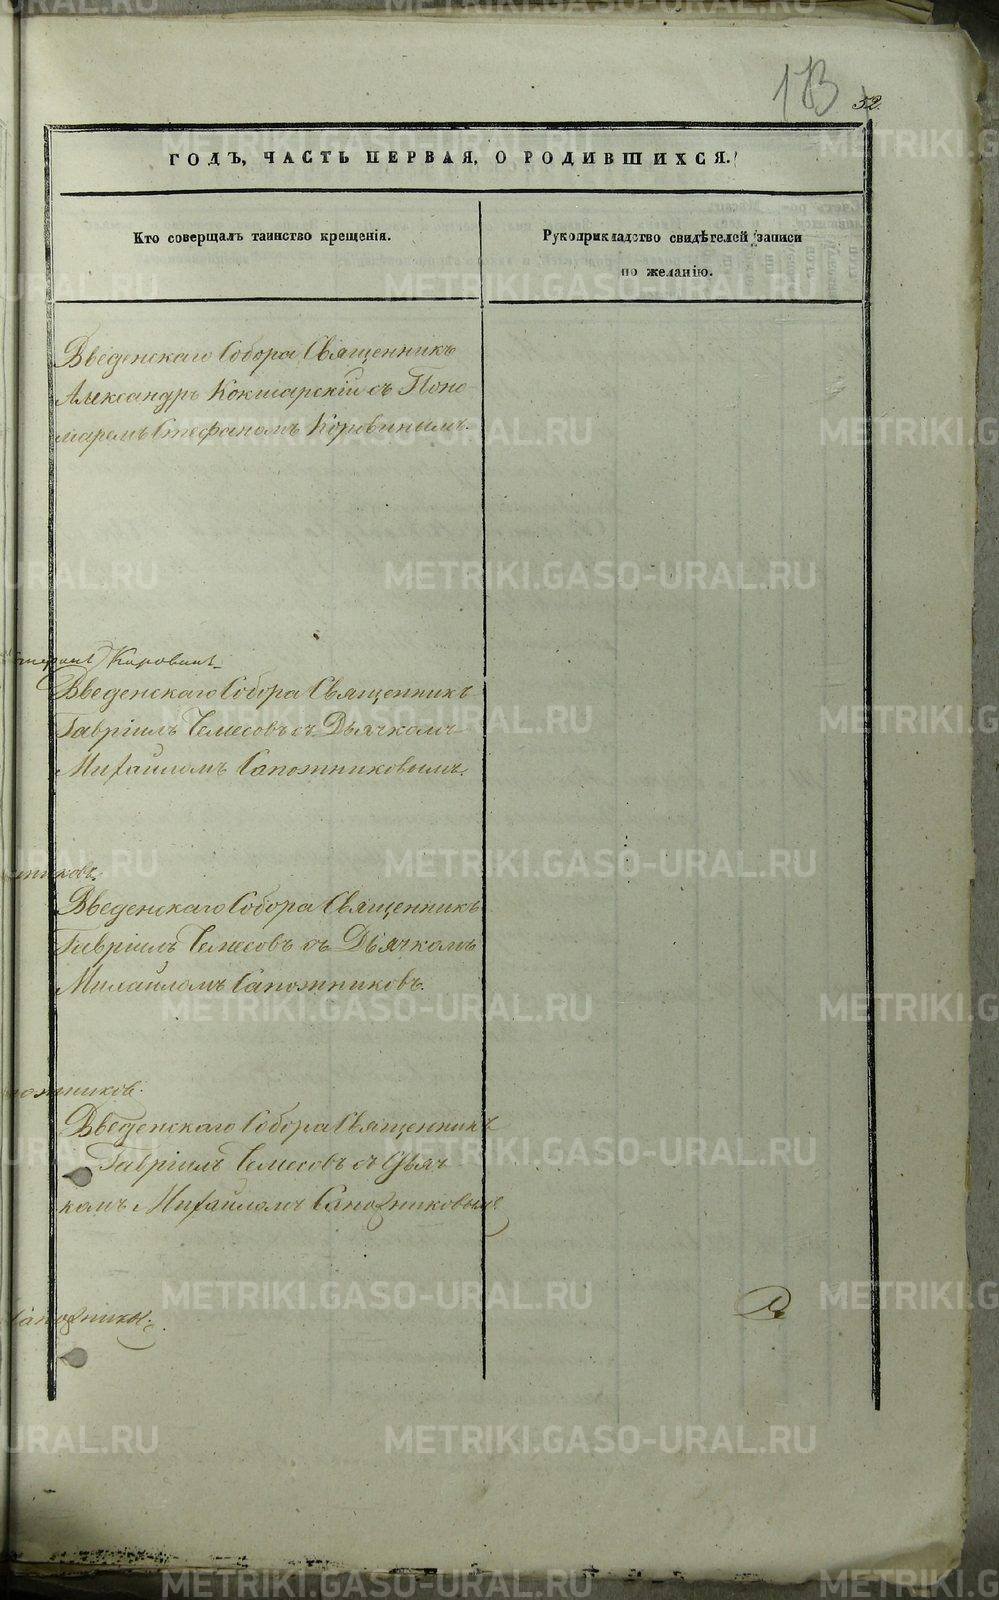 173
52.
ГОДЪ, ЧАСТЬ ПЕРВАЯ, О РОДИВШИХСЯ.
Кто совершалъ таинство крещенія.
Рукоприкладство свидѣтелей записи
по желанію.
Введенскаго Собора Священникъ
Александръ Кокшарскій съ Поно
маремъ Стефаномъ Коровинымъ.
Коровинъ
Введенскаго Собора Священникъ
Гавріилъ Чемесовъ съ Дьячкомъ
Михаиломъ Сапожниковымъ.
никовъ.
Введенскаго Собора Священникъ
Гавріилъ Чемесовъ съ Дьячкомъ
Михаиломъ Сапожниковъ.
ожниковъ.
Введенскаго Собора Священникъ
Гавріилъ Чемесовъ съ Дьяч
комъ Михаиломъ Сапожниковымъ
METRIKI.GASO-URAL.RU